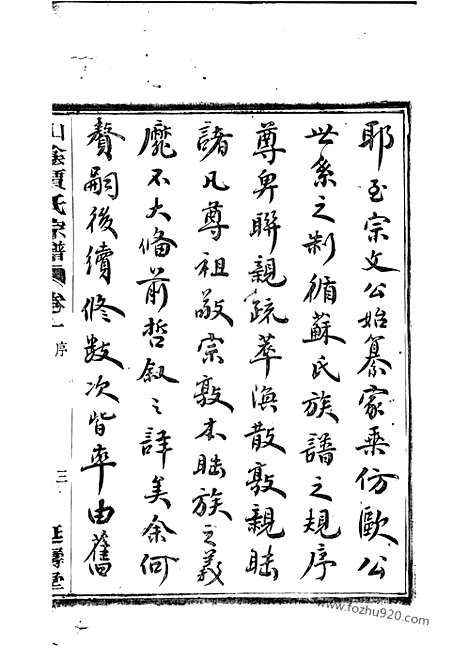 耶至宗文公始纂家乘仿歐公
世系之制循蘇氏族譜之規序
尊卑聯親疏萃渙散敦親睦
諸凡尊祖敬宗敦本睦族之義
靡不大備前哲叙之詳矣余何
贅嗣後續修數次皆率由舊
山陰賈氏宗譜 卷一 序 三
www.fozhu920.com